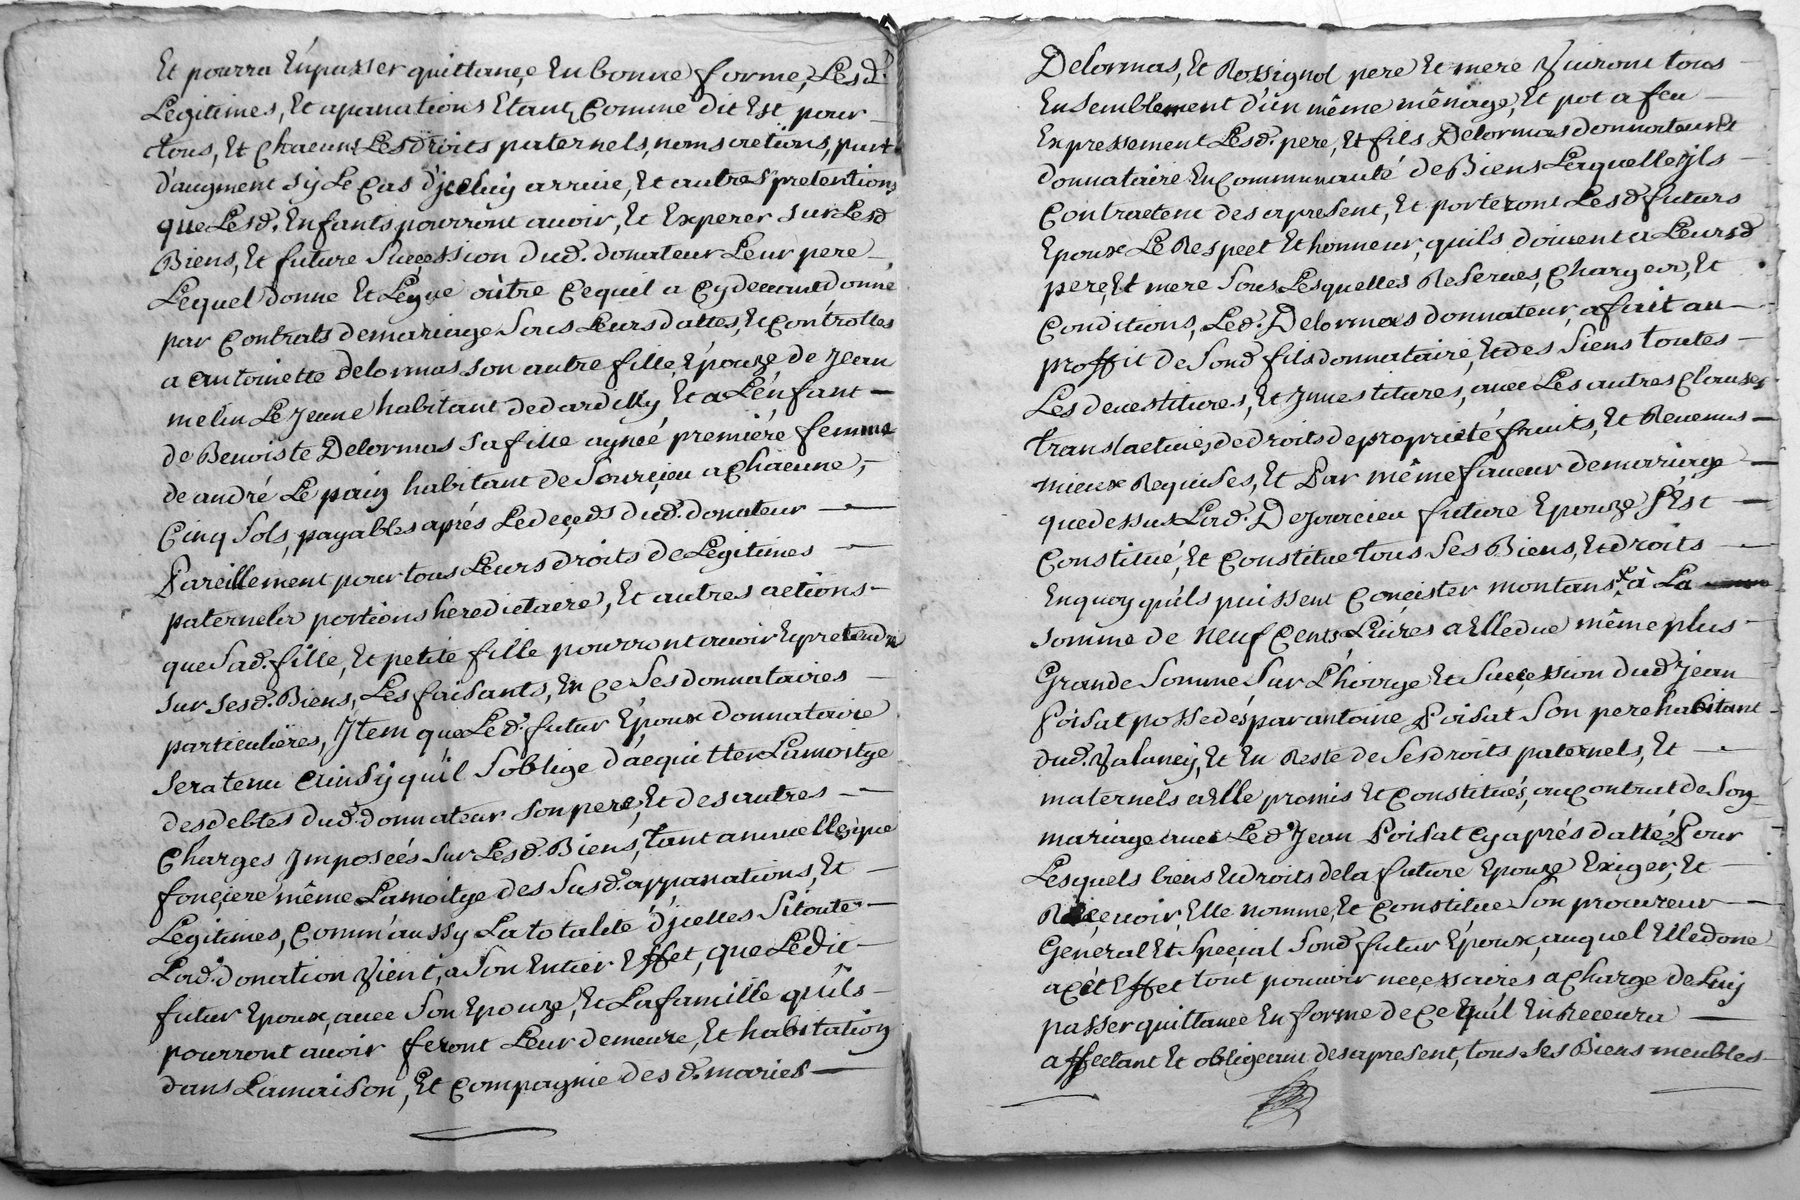 Et pourra Enpasser quittance En bonne forme, Lesd.
Legitimes, Et apanations Etant Comme dit Est pour
tous, Et Chacuns Les Droits paternels, noms actions, part
d'augment sy Le Cas d'jceluy arrive, Et autres pretentions
que Lesd. Enfants pourront avoir, Et Experer sur Lesd
Biens, Et future Succession dud. donateur Leur pere
Lequel donne Et Legue outre Cequil a Cydevant donné
par Contrats demariage Sous Leurs dattes, Et Controlles
a antoinette delormas son autre fille, Epouze de Jean
melin Le Jeune habitant dedardilly, Et a L'enfant
de Benoiste Delormas Sa fille aynéé premiéré femme
de andré Le pain habitant de Sourcieu a Chacune,
Cinq Sols, payables aprés Ledeceds dud. donateur
Pareillement pour tous Leurs droits de Legitimes
paternels portions heredictaire, Et autres actions
que Sad. fille, Et petite fille pourront avoir Et pretendre
sur Sesd. Biens, Les faisants, En Ce Ses donnataires
particulières, Jtem que Led. futur Epoux donnataire
Seratenu Ainsy qu'il S'oblige d'acquitter Lamoitye
des debtes dud. donnateur son pere, Et des autres
Charges Jmposéés Sur Lesd. Biens, tant annuelles que
fonciere même Lamoitye des Susd. appanations, Et
Legitimes, Comm'aussy La totalité d'jcelles Sitoute
Lad. donation Vient, a Son Entier Effet, que Ledit
futur Epoux, avec Son Epouze, Et Lafamille qu'ils
pourront avoir feront Leur demeure, Et habitation
dans Lamaison, Et Compagnie des d. mariés
Delormas, Et Rossignol pere Et mere Vivront tous
Ensemblement d'ün même ménage, Et pot a feu
Expressement Lesd. pere, Et fils Delormas donnateur Et
donnataire En Communauté de Biens Laquelle jls
Contractent des apresent, Et porteront Lesd. futurs
Epoux Le Respect Et honneur, quils doivent a Leursd
pere, Et mere Sous Lesquelles Reserves, Charges, Et
Conditions, Led. Delormas donnateur, a fait au
proffit de Sond fils donnataire, Et des Siens toutes
Les devestitures, Et Jnvestitures, avec Les autres Clauses
translactives de droits de proprieté fruits, Et Revenus
mieux Requises, Et Par même faveur demariage
que dessus Lad. Dejourcieu future Epouze S'Est
Constitué, Et Constitue tous Ses Biens, Et droits
En quoy qu'ils puissent Concister montans, à La
Somme de neuf Cents Livres a Elle due même plus
Grande Somme Sur L'hoirye Et Succession dud. Jean
Poisat possedés par antoine Poisat Son pere habitant
dud. Valancy, Et En Reste de Ses droits paternels, Et
maternels a Elle promis Et Constitués, au Contrat de Son
mariage avec Led. Jean Poisat Cy aprés datté, Pour
Lesquels biens Et droits de la future Epouze Exiger, Et
Recevoir, Elle nomme, Et Constitue Son procureur
General Et Special Sond. futur Epoux, auquel Elle done
a Cét Effet tout pouvoir necessaires a Charge de Luy
passer quittance En forme de Ce qu'il En Recevra
affectant Et obligeant, des apresent, tous Ses Biens meubles